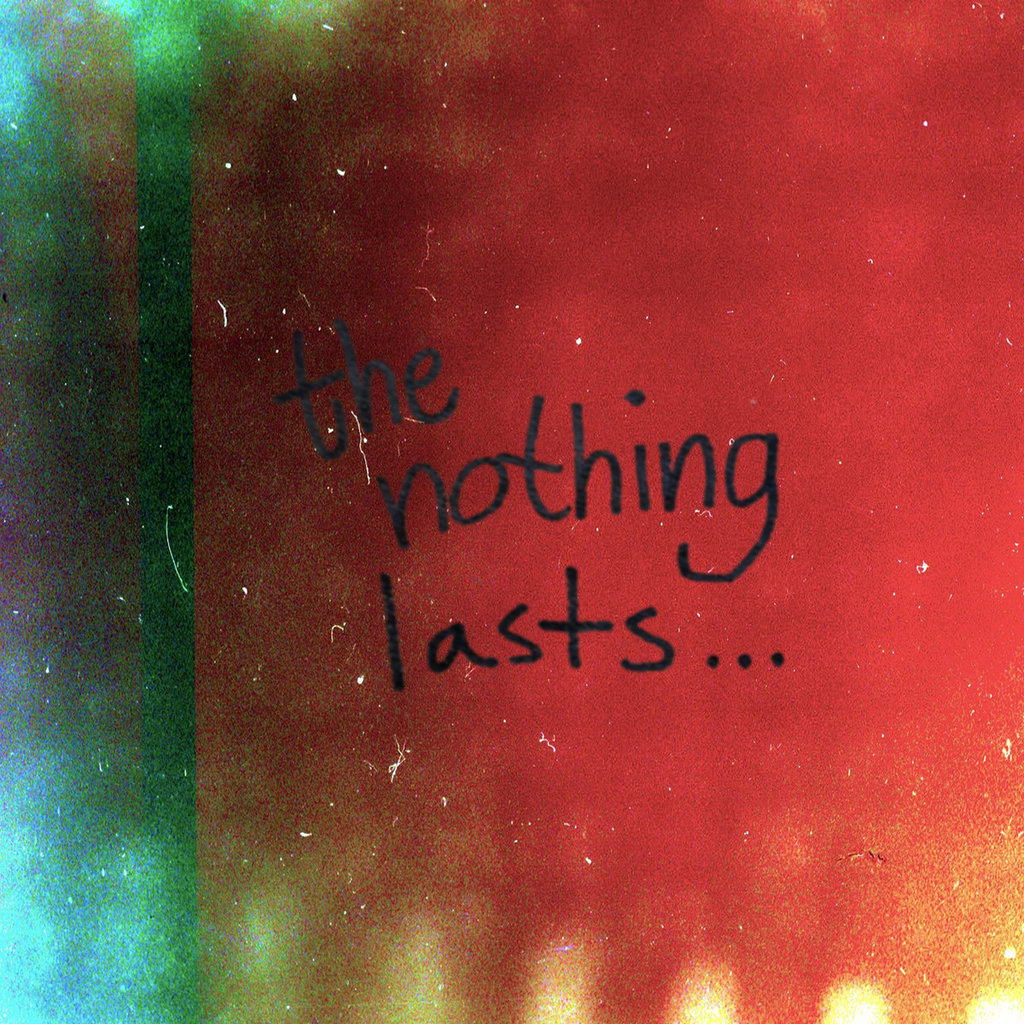 the
nothing
lasts...